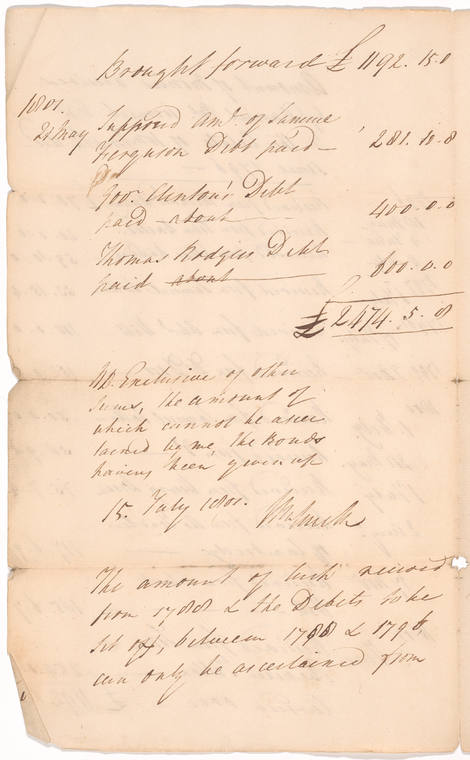 Brought forward £ 1192. 15. 0
1801.
21 May Supposed amt. of Samue
Ferguson Debt paid — 281. 10. 8
Gov. Clinton's Debt
paid — about 400. 0. 0
Thomas Rodgers Debt
paid about 600. 0. 0
£ 2474. 5. 8
NB. Exclusive of other
sums, the amount of
which cannot be ascer
tained by me, the Bonds
having been given up
15. July 1801.
The amount of Cash received
from 1788 & the Debits to be
set off, between 1788 & 1796,
can only be ascertained from